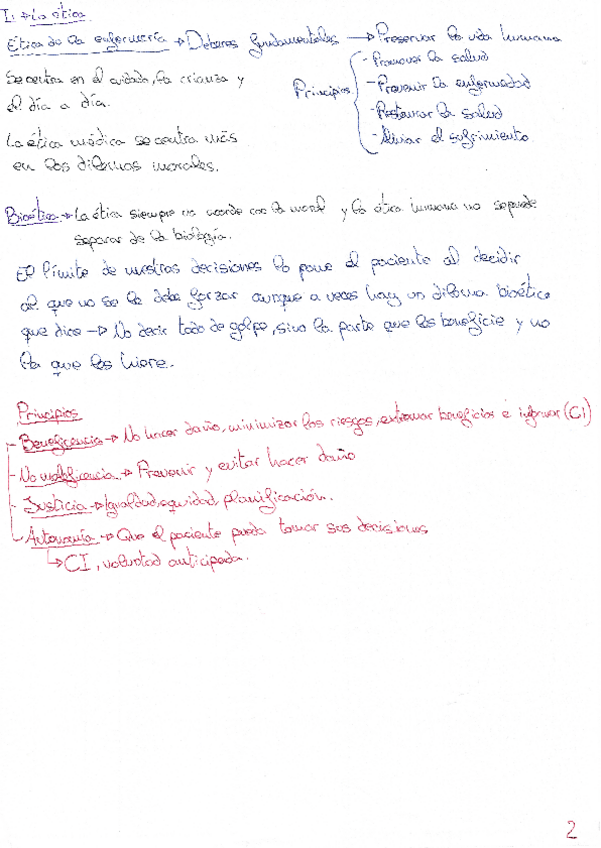 I: → La ética
Ética de la enfermería → Deberes fundamentales → Preservar la vida humana
Principios
- Promover la salud
- Prevenir la enfermedad
- Restaurar la salud
- Aliviar el sufrimiento
Se centra en el cuidado, la crianza y
el día a día.
La ética médica se centra más
en los dilemas morales.
Bioética → La ética siempre va acorde con la moral y la ética humana no se puede
separar de la biología.
El límite de nuestras decisiones lo pone el paciente al decidir
al que no se le debe forzar aunque a veces hay un dilema bioético
que dice → No decir todo de golpe, sino la parte que les beneficie y no
la que les hiere.
Principios
- Beneficencia → No hacer daño, minimizar los riesgos, extremar beneficios e informar (CI)
- No maleficencia → Prevenir y evitar hacer daño
- Justicia → Igualdad, equidad, planificación.
- Autonomía → Que el paciente pueda tomar sus decisiones
↳ CI, voluntad anticipada.
2